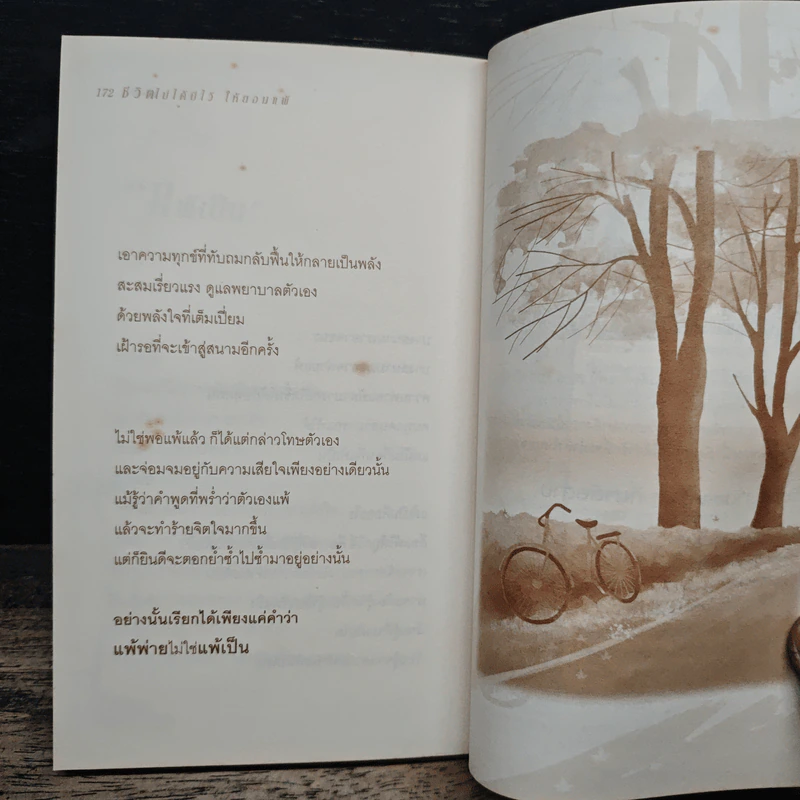 172 ชีวิตไม่ได้มีไว้ ให้ยอมแพ้
เอาความทุกข์ที่ทับถมกลับฟื้นให้กลายเป็นพลัง
สะสมเรี่ยวแรง ดูแลพยาบาลตัวเอง
ด้วยพลังใจที่เต็มเปี่ยม
เฝ้ารอที่จะเข้าสู่สนามอีกครั้ง
ไม่ใช่พอแพ้แล้ว ก็ได้แต่กล่าวโทษตัวเอง
และจ่อมจมอยู่กับความเสียใจเพียงอย่างเดียวนั้น
แม้รู้ว่าคำพูดที่พร่ำว่าตัวเองแพ้
แล้วจะทำร้ายจิตใจมากขึ้น
แต่ก็ยินดีจะตอกย้ำซ้ำไปซ้ำมาอยู่อย่างนั้น
อย่างนั้นเรียกได้เพียงแค่คำว่า
แพ้พ่ายไม่ใช่แพ้เป็น